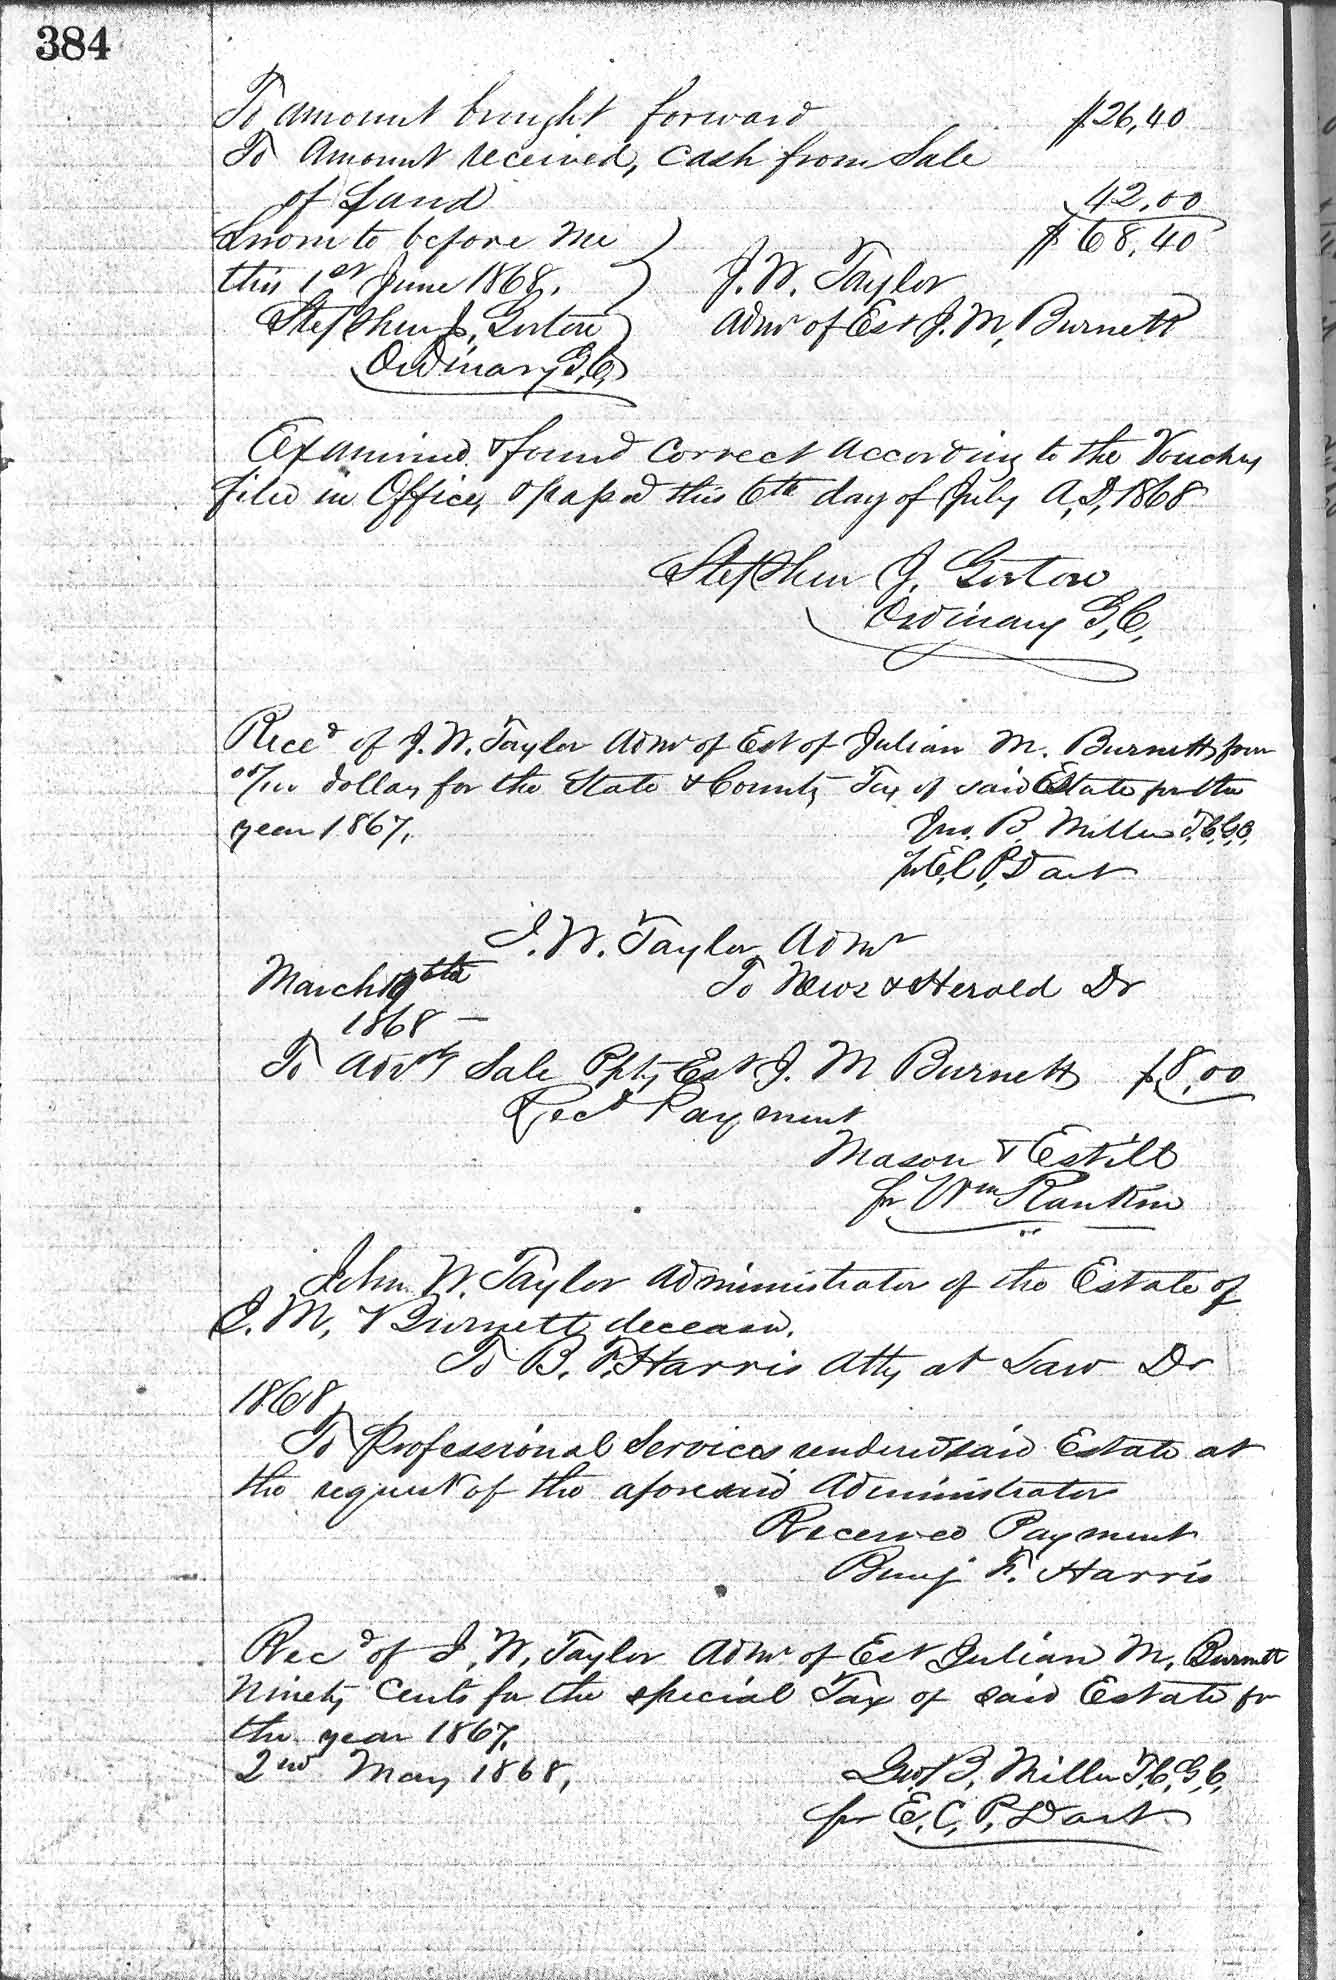 384
To amount brought forward $26,40
To Amount received, cash from Sale
of Land 42,00
Sworn to before me $68,40
this 1st June 1868. J. W. Taylor
Stephen J. Gorton Admr of Est J. M, Burnett
Ordinary G,C,
Examined & found correct according to the Vouchers
filed in Office, & passed this 6th day of July A,D, 1868
Stephen J. Gorton
Ordinary G,C,
Reced of J. W. Taylor Admr of Est of Julian M. Burnett four
/100 dollars for the State & County Tax of said Estate for the
year 1867. B. Miller T.C.G.C.
pr E,C,P, Dart
J. W. Taylor Admr
March 19th To News & Herald Dr
1868 —
To Advg Sale Ppty Est J. M Burnett $8,00
Recd Payment
Mason & Estill
pr Wm Rankin
John W. Taylor Administrator of the Estate of
J. M, Burnett deceasd.
To B. F. Harris Atty at Law Dr
1868,
To Professional Services rendered said Estate at
the request of the aforesaid Administrator
Received Payment
Benj F. Harris
Recd of J, W, Taylor Admr of Est Julian M, Burnett
Ninety Cents for the special Tax of said Estate for
the year 1867.
2nd May 1868, Geo B, Miller T,C,G,C,
pr E, C, P, Dart